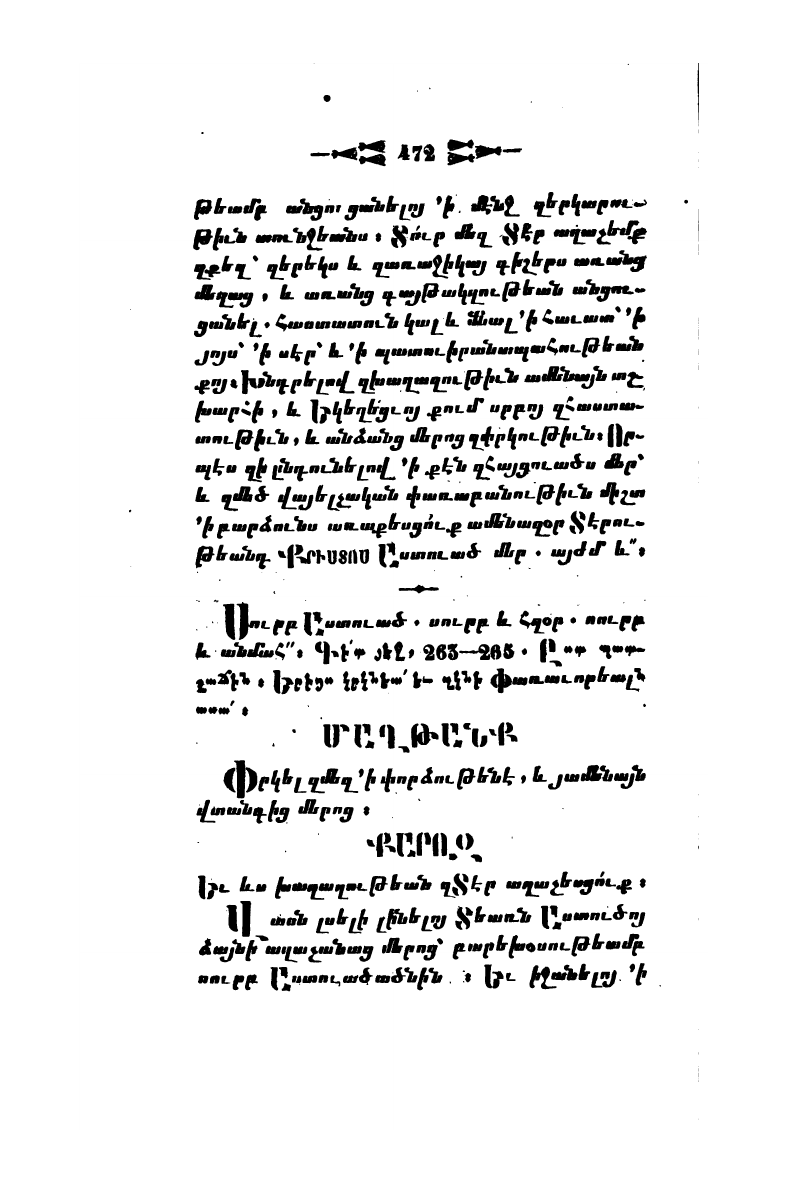 472
թեամբ անցուցանելոյ ՚ի մէնջ զերկարու-
թիւն տունջեանս ։ Տո՛ւր մեզ Տէր աղաչեմք
զքեզ՝ զերեկս և զառաջիկայ գիշերս առանց
մեղաց , և առանց գայթակղութեան անցու-
ցանել . հաստատուն կալ և մնալ ՚ի հաւատ՝ ՚ի
յոյս՝ ՚ի սէր՝ և ՚ի պատուիրանապահութեան
քոյ. Խնդրելով զխաղաղութիւն ամենայն աշ-
խարհի , և Եկեղեցւոյ քում սրբոյ զհաստա-
տութիւն , և անձանց մերոց զփրկութիւն ։ Որ-
պէս զի ընդունելով ՚ի քէն զհայցուածս մեր՝
և զմեծ վայելչական փառաբանութիւն միշտ
՚ի բարձունս առաքեսցո՛ւք ամենազօր Տէրու-
թեանդ ՔՐԻՍՏՈՍ Աստուած մեր . այժմ և՟ ։
Սուրբ Աստուած . սուրբ և հզօր . սուրբ
և անմահ՟ ։ 263—265 .
Փառաւորեալն
ՄԱՂԹԱՆՔ
Փրկել զմեզ ՚ի փորձութենէ , և յամենայն
վտանգից մերոց ։
ՔԱՐՈԶ
Եւ ևս խաղաղութեան զՏէր աղաչեսցո՛ւք ։
Վասն լսելի լինելոյ Տեառն Աստուծոյ
ձայնի աղաչանաց մերոց՝ բարեխօսութեամբ
սուրբ Աստուածածնին ։ Եւ իջանելոյ ՚ի